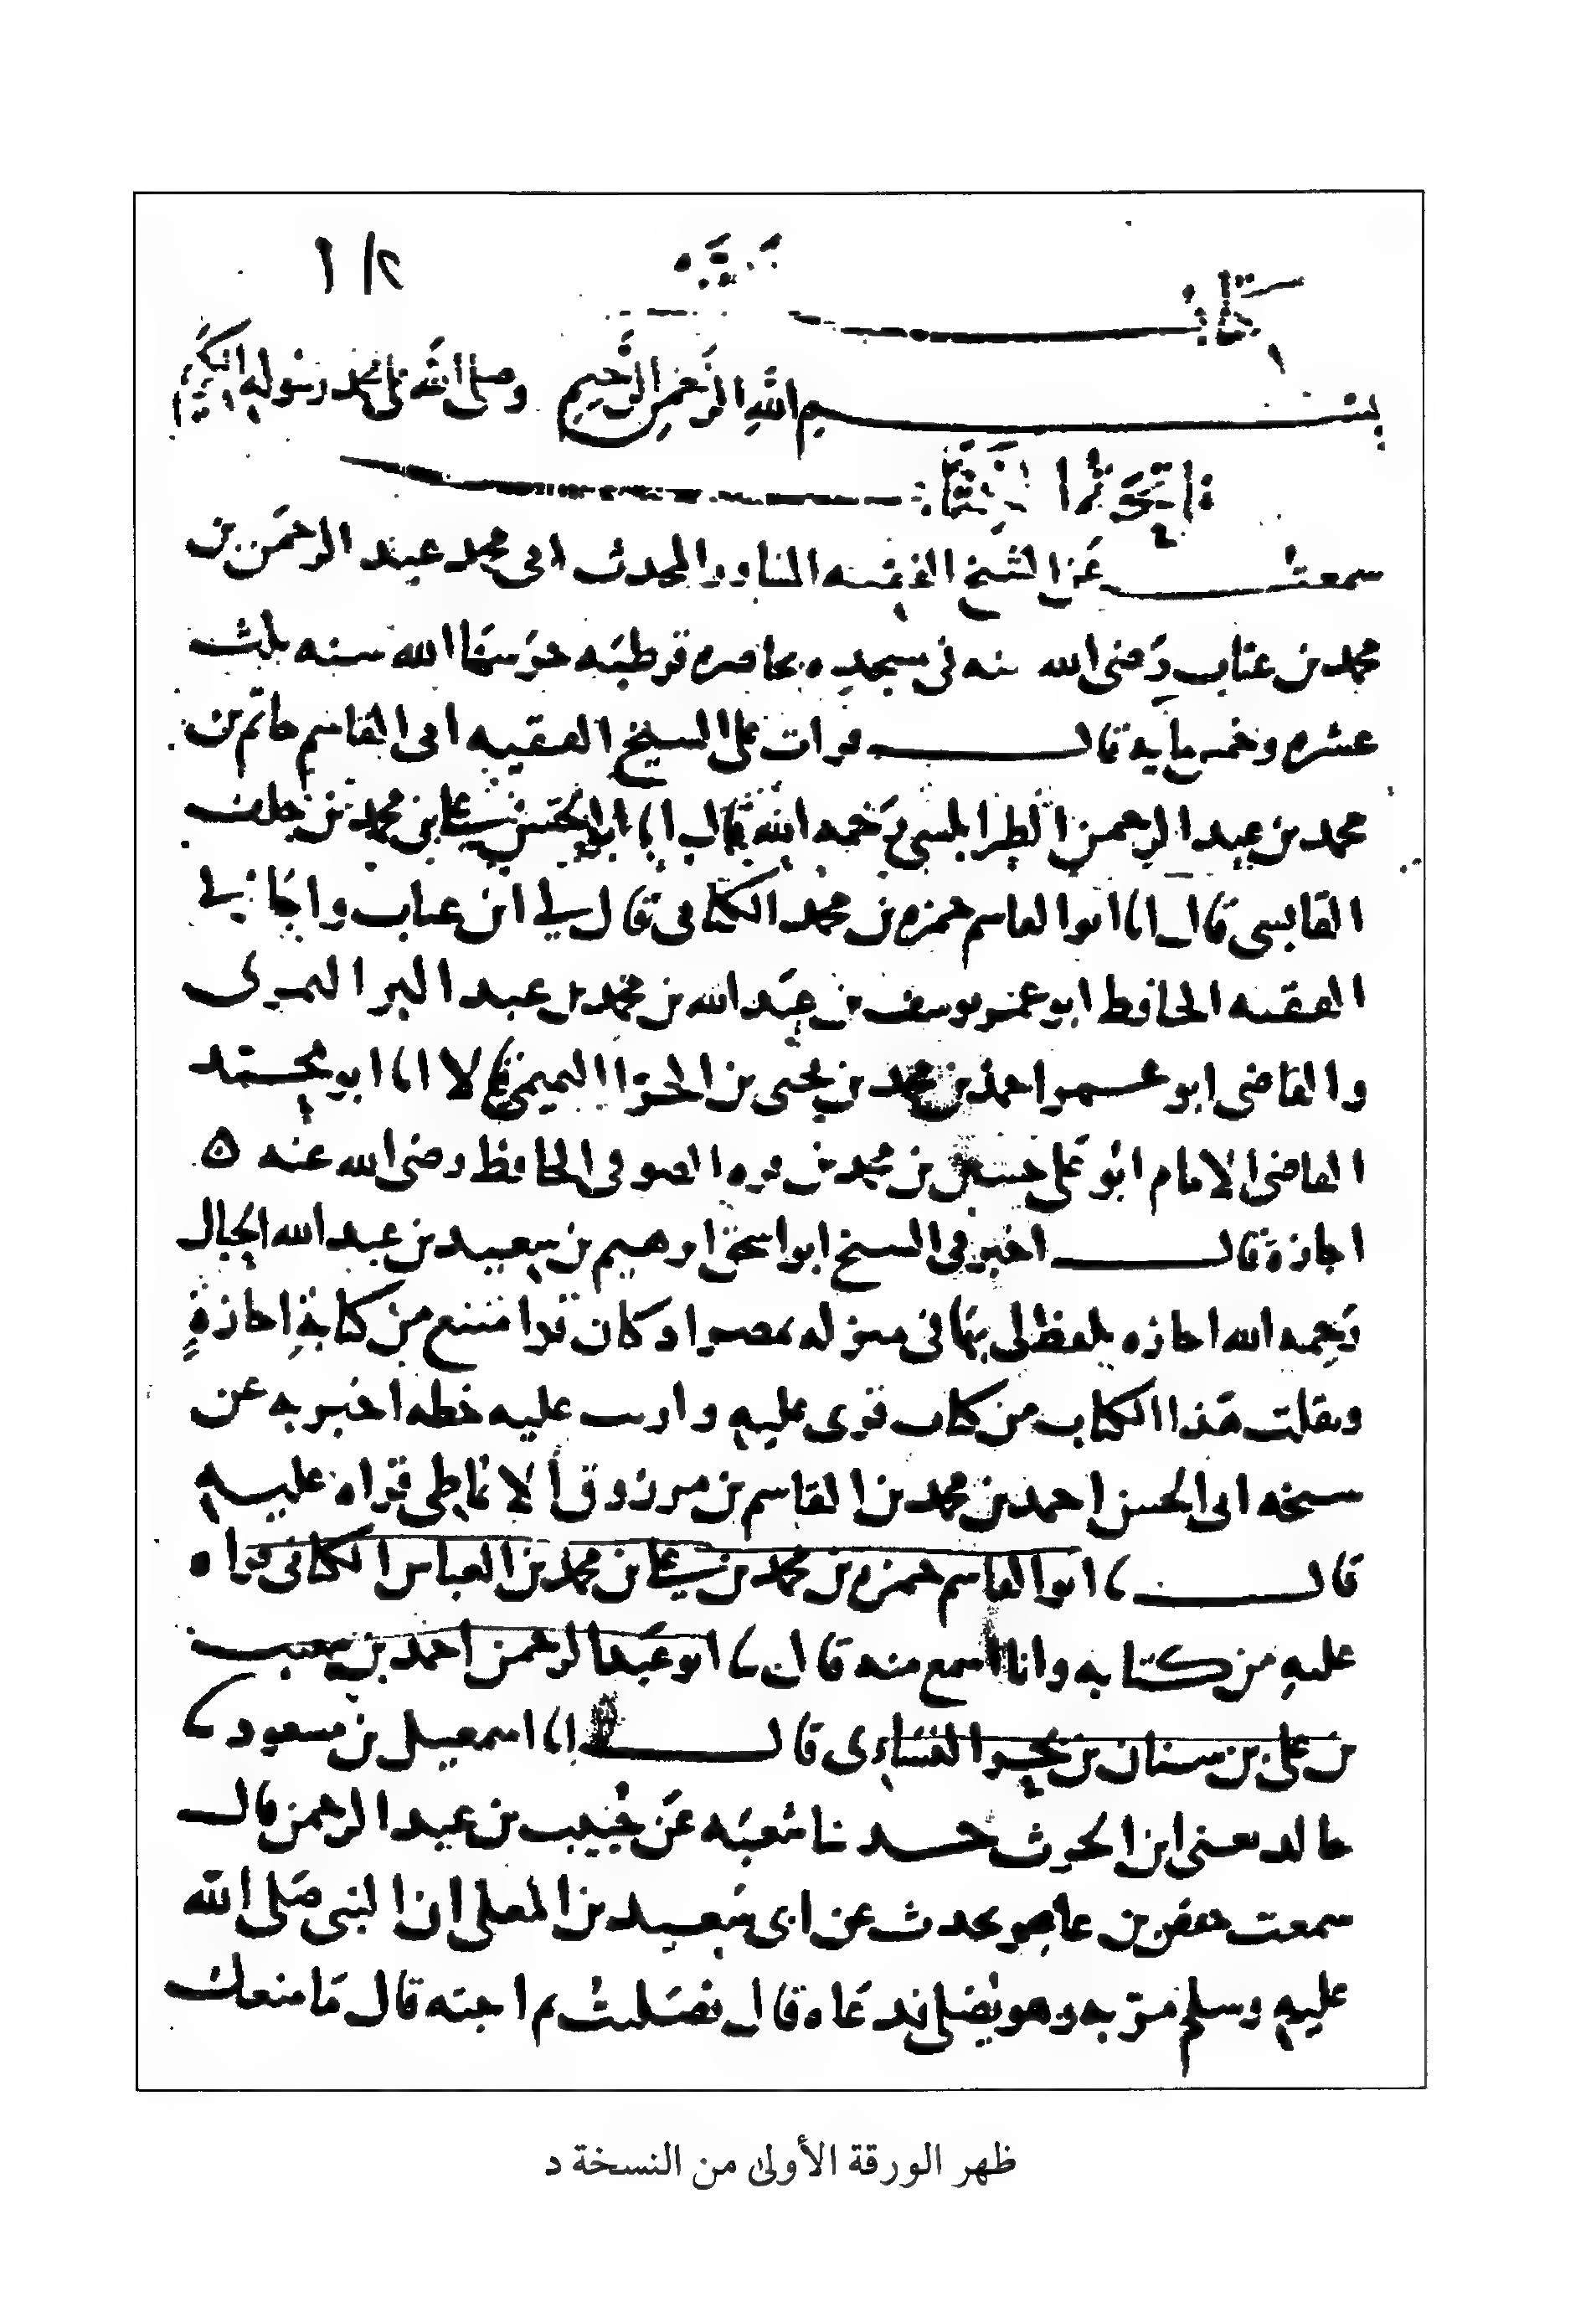 ١ ٢/
كتاب
بسم الله الرحمن الرحيم وصلى الله على محمد رسوله الكريم
فاتحة
سمعت عن الشيخ الفقيه المشاور المحدث ابى محمد عبد الرحمن بن
محمد بن عتاب رضى الله عنه فى مسجده بحاضره قرطبه حرسها الله سنه ثلث
عشره وخمس مايه قال قرات على الشيخ الفقيه ابى القاسم حاتم بن
محمد بن عبد الرحمن الطرابلسى رحمه الله قال انا ابو الحسن على بن محمد بن خلف
القابسى قال انا ابو القاسم حمزه بن محمد الكنانى قال لي ابن عتاب واجازنى
الفقيه الحافظ ابو عمر يوسف بن عبد الله بن محمد بن عبد البر النمرى
والقاضى ابو عمر احمد بن محمد بن يحيى بن الحذا التميمى قالا انا ابو محمد
القاضى الامام ابو على حسين بن محمد بن فيره الصوفى الحافظ رضى الله عنه ٥
اجازة قال اخبرنى الشيخ ابو اسحق ابرهيم بن سعيد بن عبد الله الحبال
رحمه الله اجازه بلفظ لى بها فى منزله بمصر اذ كان قد امتنع من كتابة اجازة
ونقلت هذا الكتاب من كتاب قرى عليه و عليه خطه اخبر به عن
شيخه ابى الحسن احمد بن محمد بن القاسم بن مرزوق الانماطى قراه عليه
قال نا ابو القاسم حمزه بن محمد بن على بن محمد بن العباس الكنانى قراه
عليه من كتابه وانا اسمع منه قال نا ابو عبد الرحمن احمد بن شعيب
بن على بن سنان بن بحر النساءى قال انا اسمعيل بن مسعود نا
خالد يعنى ابن الحرث حدثنا شعبه عن خبيب بن عبد الرحمن قال
سمعت حفص بن عاصم يحدث عن ابى سعيد بن المعلى ان النبى صلى الله
عليه وسلم مر به وهو يصلى فدعاه قال فصليت ثم اجته قال ما منعك
ظهر الورقة الأولى من النسخة د